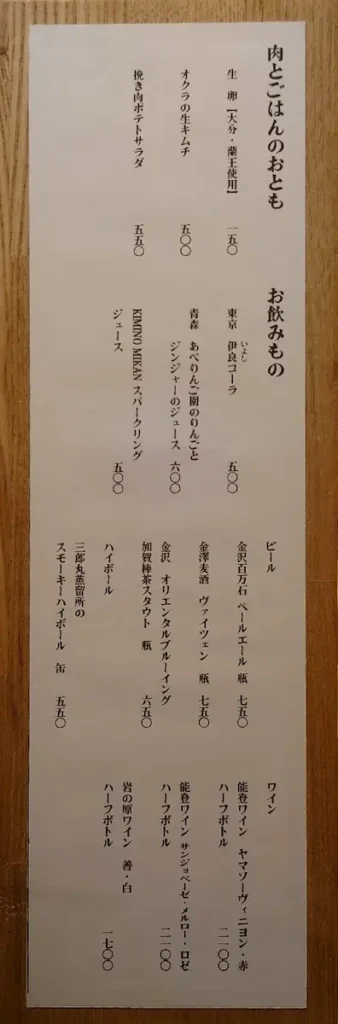 肉とごはんのおとも
生 卵【大分・蘭王使用】 一五〇
オクラの生キムチ 五〇〇
挽き肉ポテトサラダ 五五〇
お飲みもの
東京 伊良コーラ 五〇〇
いよし
青森 あべりんご園のりんごと
ジンジャーのジュース 六〇〇
KIMINO MIKAN スパークリング
ジュース 五〇〇
ビール
金沢百万石 ペールエール 瓶 七五〇
金澤麦酒 ヴァイツェン 瓶 七五〇
金沢 オリエンタルブルーイング
加賀棒茶スタウト 瓶 六五〇
ハイボール
三郎丸蒸留所の
スモーキーハイボール 缶 五五〇
ワイン
能登ワイン ヤマソーヴィニヨン・赤
ハーフボトル 二一〇〇
能登ワイン サンジョベーゼ・メルロー・ロゼ
ハーフボトル 二一〇〇
岩の原ワイン 善・白
ハーフボトル 一七〇〇